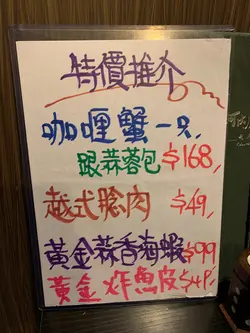 特價推介
咖喱蟹一只,
跟蒜蓉包 $168,
越式膾肉 $49,
黃金蒜香海蝦 $99
黃金炸魚皮